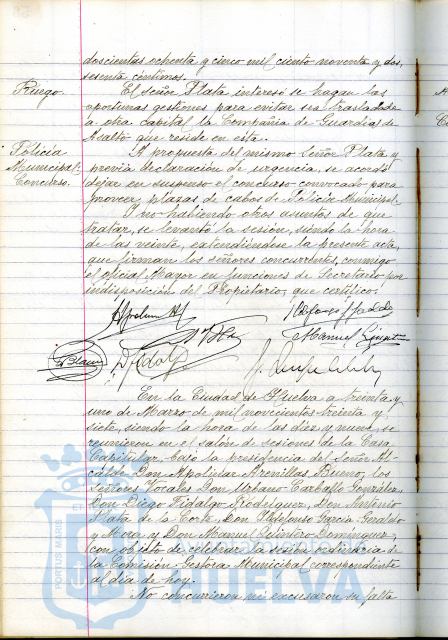 doscientas ochenta y cinco mil ciento noventa y dos,
sesenta céntimos.
Ruego. El señor Plata interesó se hagan las
oportunas gestiones para evitar sea trasladada
a otra capital la Compañía de Guardias de
Asalto que reside en esta.
Policía A propuesta del mismo señor Plata y
Municipal: previa declaración de urgencia, se acordó
Concurso. dejar en suspenso el concurso convocado para
proveer plazas de cabos de Policía Municipal.
Y no habiendo otros asuntos de que
tratar, se levantó la sesión, siendo la hora
de las veinte, extendiéndose la presente acta,
que firman los señores concurrentes, conmigo
el oficial Mayor en funciones de Secretario por
indisposición del Propietario, que certifico.
En la Ciudad de Huelva a treinta y
uno de Marzo de mil novecientos treinta y
siete, siendo la hora de las diez y nueve, se
reunieron en el salón de sesiones de la Casa
Capitular, bajo la presidencia del señor Al-
calde Don Apolinar Arenillas Bueno, los
señores Vocales Don Urbano Carballo González,
Don Diego Hidalgo Rodríguez, Don Antonio
Plata de la Corte, Don Ildefonso García Geraldo
y Mora y Don Manuel Quintero Domínguez,
con objeto de celebrar la sesión ordinaria de
la Comisión Gestora Municipal correspondiente
al día de hoy.
No concurrieron ni excusaron su falta
PORTUS MARIS
HUELVA